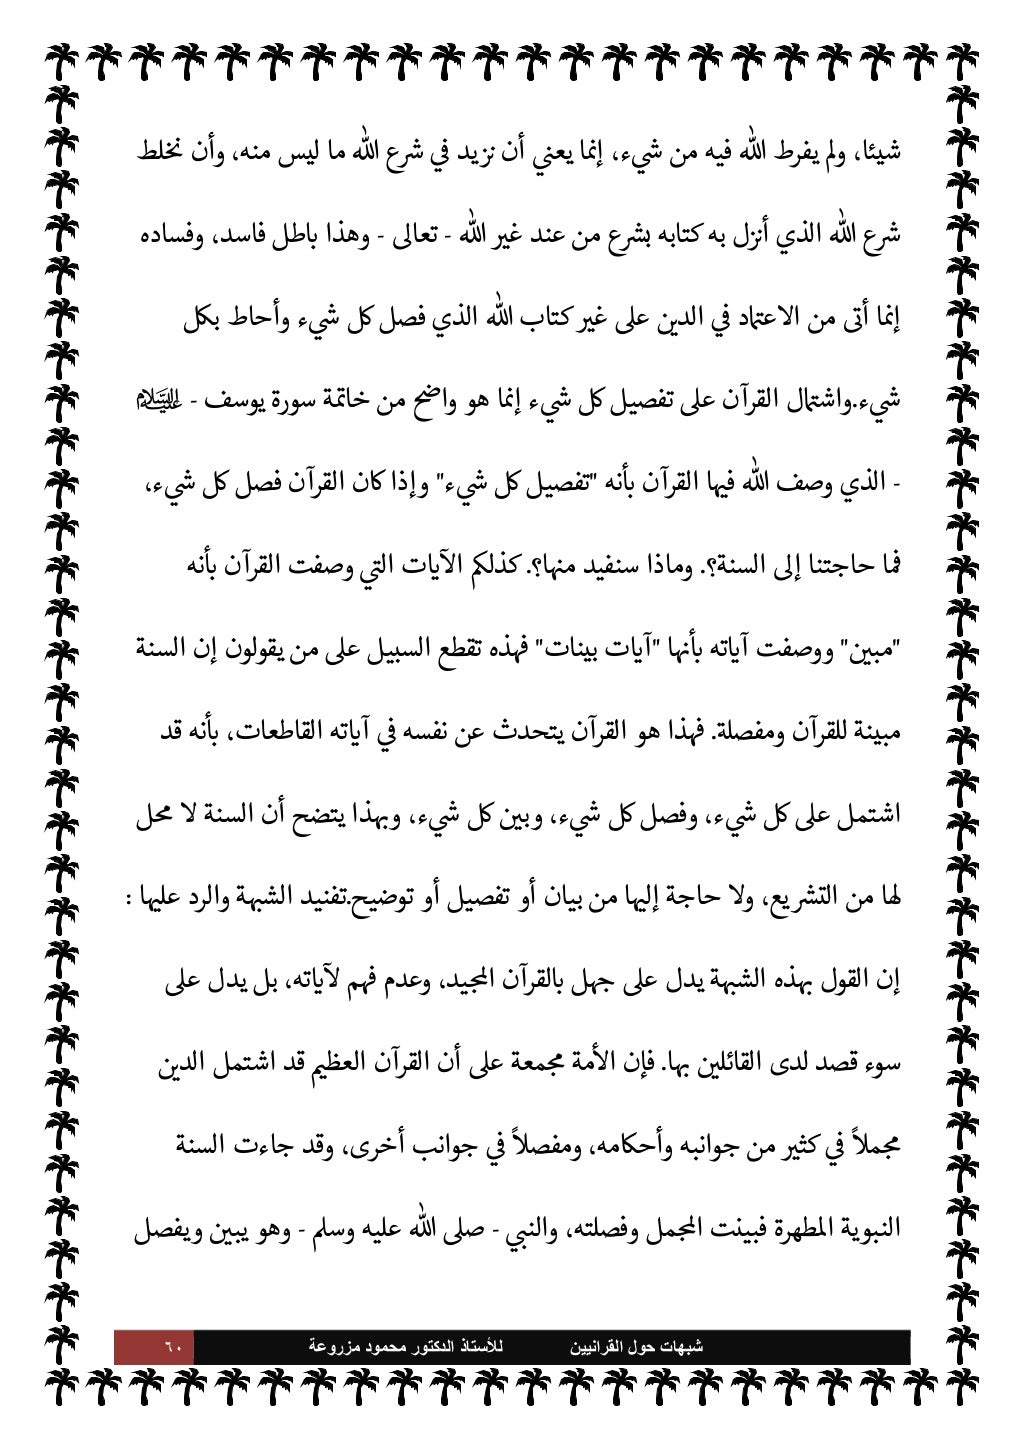 شيئا، ولم يفرط الله فيه من شيء، إنما يعني أن نزيد في شرع الله ما ليس منه، وأن نخلط
شرع الله الذي أنزل به كتابه بشرع من عند غير الله - تعالى - وهذا باطل فاسد، وفساده
إنما أتى من الاعتماد في الدين على غير كتاب الله الذي فصل كل شيء وأحاط بكل
شيء.واشتمال القرآن على تفصيل كل شيء إنما هو واضح من خاتمة سورة يوسف - عليه السلام
- الذي وصف الله فيها القرآن بأنه "تفصيل كل شيء" وإذا كان القرآن فصل كل شيء،
فما حاجتنا إلى السنة؟. وماذا سنفيد منها؟. كذلكم الآيات التي وصفت القرآن بأنه
"مبين" ووصفت آياته بأنها "آيات بينات" فهذه تقطع السبيل على من يقولون إن السنة
مبينة للقرآن ومفصلة. فهذا هو القرآن يتحدث عن نفسه في آياته القاطعات، بأنه قد
اشتمل على كل شيء، وفصل كل شيء، وبين كل شيء، وبهذا يتضح أن السنة لا محل
لها من التشريع، ولا حاجة إليها من بيان أو تفصيل أو توضيح.تفنيد الشبهة والرد عليها :
إن القول بهذه الشبهة يدل على جهل بالقرآن المجيد، وعدم فهم لآياته، بل يدل على
سوء قصد لدى القائلين بها. فإن الأمة مجمعة على أن القرآن العظيم قد اشتمل الدين
مجملاً في كثير من جوانبه وأحكامه، ومفصلاً في جوانب أخرى، وقد جاءت السنة
النبوية المطهرة فبينت المجمل وفصلته، والنبي - صلى الله عليه وسلم - وهو يبين ويفصل
شبهات حول القرانيين للأستاذ الدكتور محمود مزروعة ٦٠